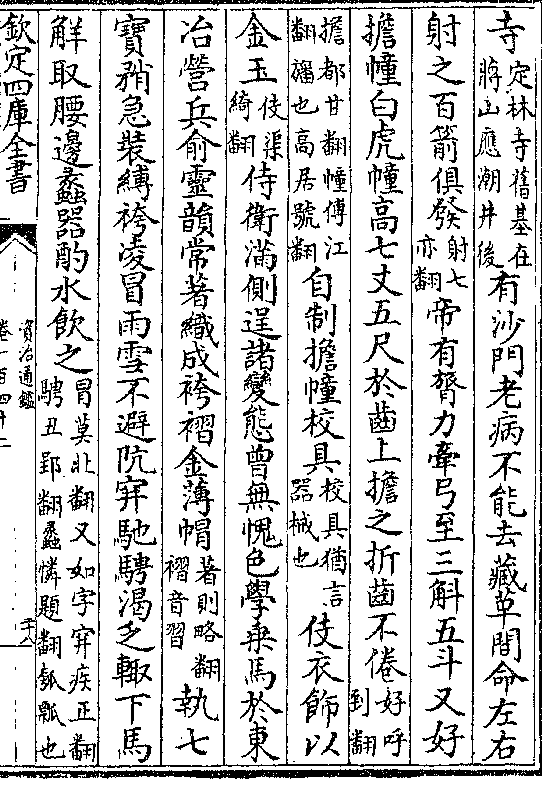 寺定林寺舊基在蔣山應潮井後有沙門老病不能去藏草間命左右
射之百箭俱發射七亦翻帝有膂力牽弓至三斛五斗又好
擔幢白虎幢高七丈五尺於齒上擔之折齒不倦好呼到翻
擔都甘翻幢傳江翻旛也高居號翻自制擔幢校具校具猶言器械也伎衣飾以
金玉伎渠綺翻侍衛滿側逞諸變態曾無愧色學乗馬於東
冶營兵俞靈韻常著織成袴褶金薄帽著則略翻褶音習執七
寶矟急裝縛袴凌冒雨雪不避阬穽馳騁渴乏輙下馬
解取腰邊蠡器酌水飲之冒莫北翻又如字穽疾正翻騁丑郢翻蠡憐題翻瓠瓢也
欽定四庫全書
資治通鑑
卷一百四十二